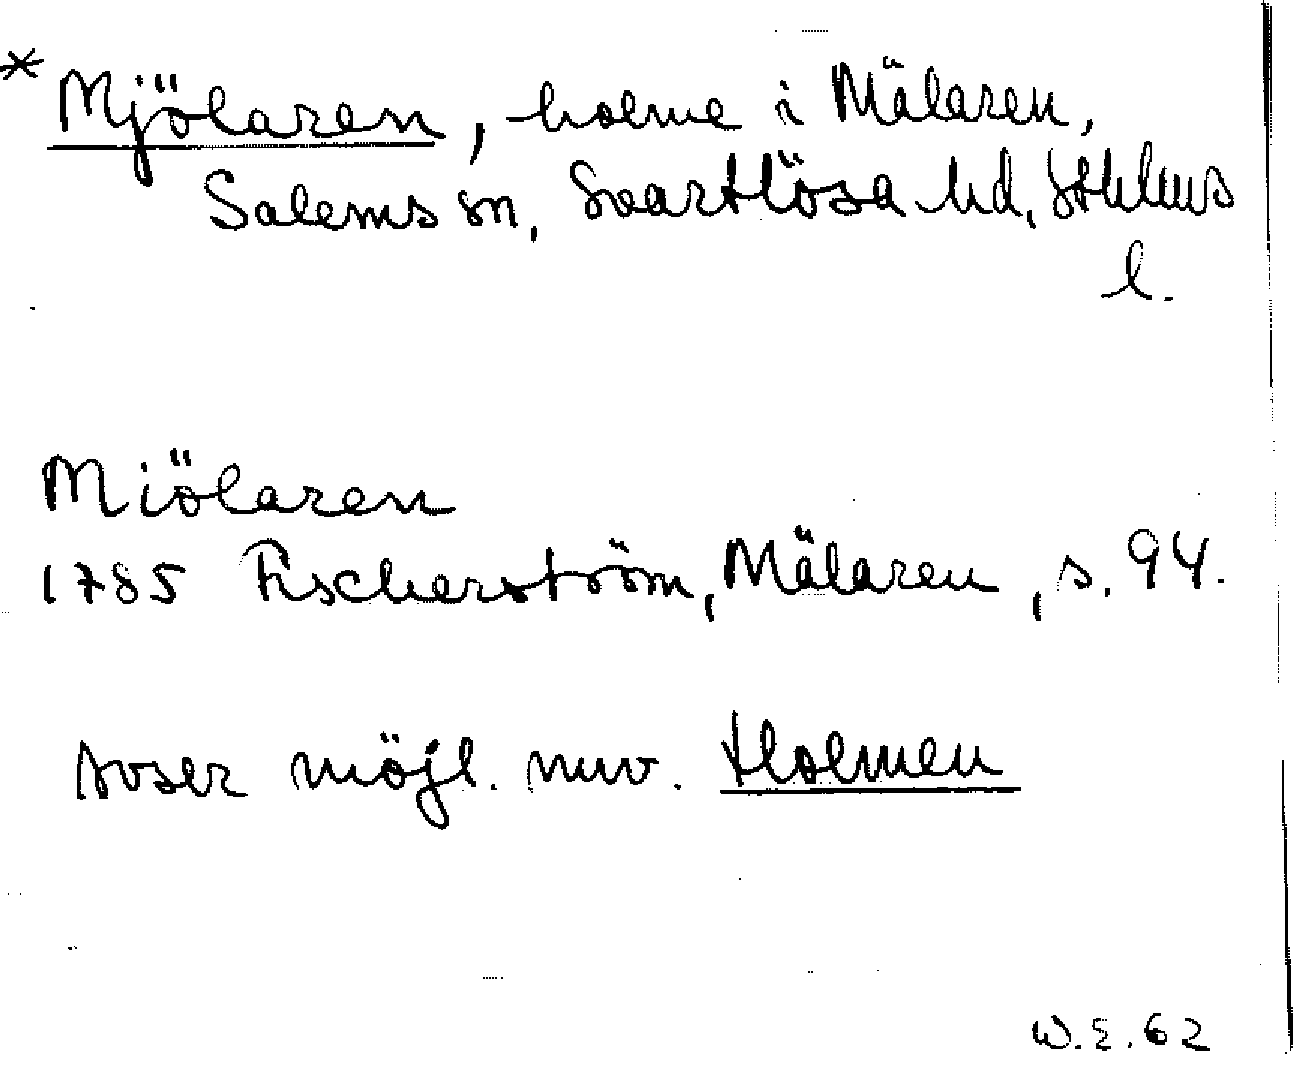 * Mjölaren, holme i Mälaren,
Salems sn, Svartlösa hd, Sthlms
l.
Miölaren
1785 Fischerström, Mälaren, s. 94.
Avser möjl. nuv. Holmen
W.E. 62